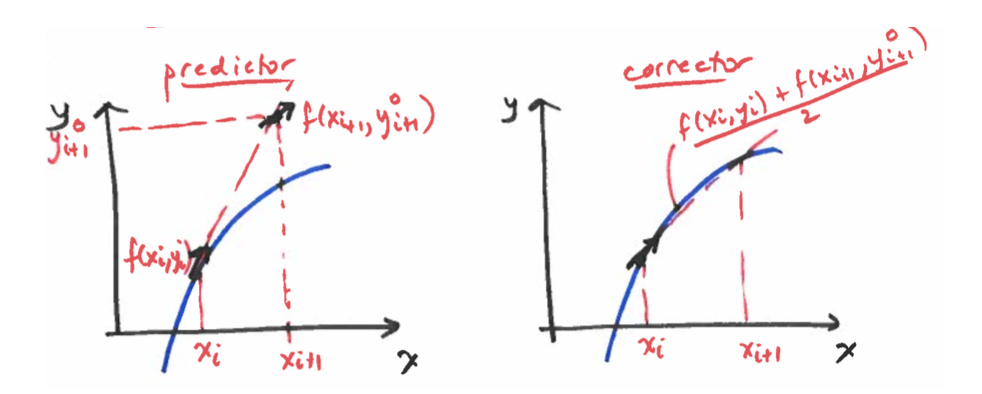 predictor
y
y⁰ᵢ₊₁
f(xᵢ₊₁, y⁰ᵢ₊₁)
f(xᵢ,yᵢ)
xᵢ
xᵢ₊₁
x
corrector
y
f(xᵢ,yᵢ) + f(xᵢ₊₁, y⁰ᵢ₊₁)
2
xᵢ
xᵢ₊₁
x